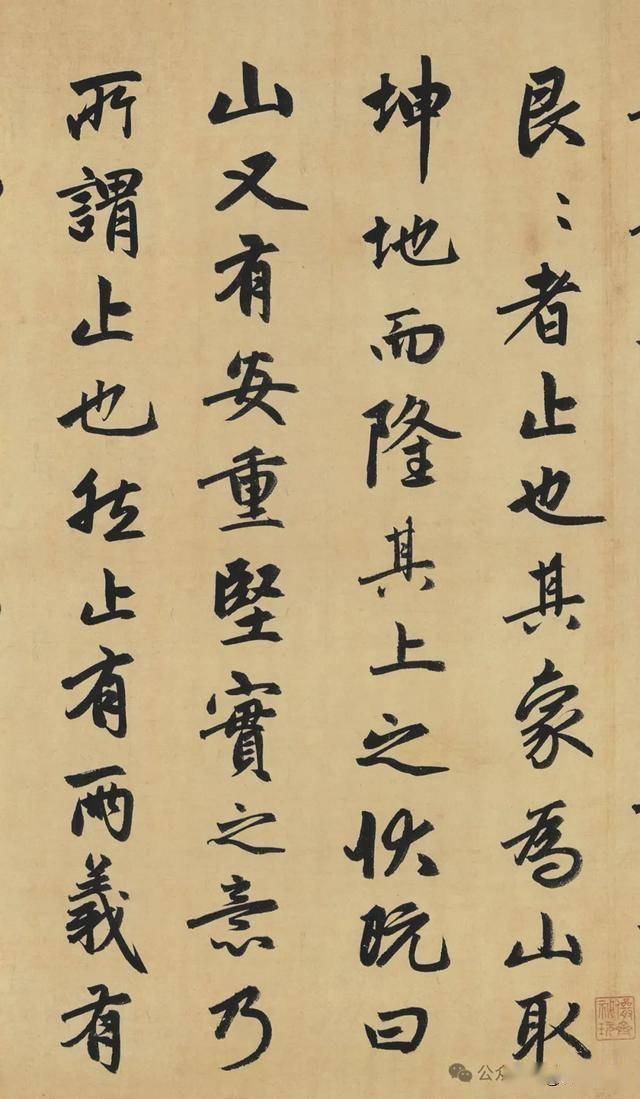 艮〻者止也其象為山取
坤地而隆其上之状既曰
山又有安重堅實之意乃
所謂止也然止有兩義有
公众